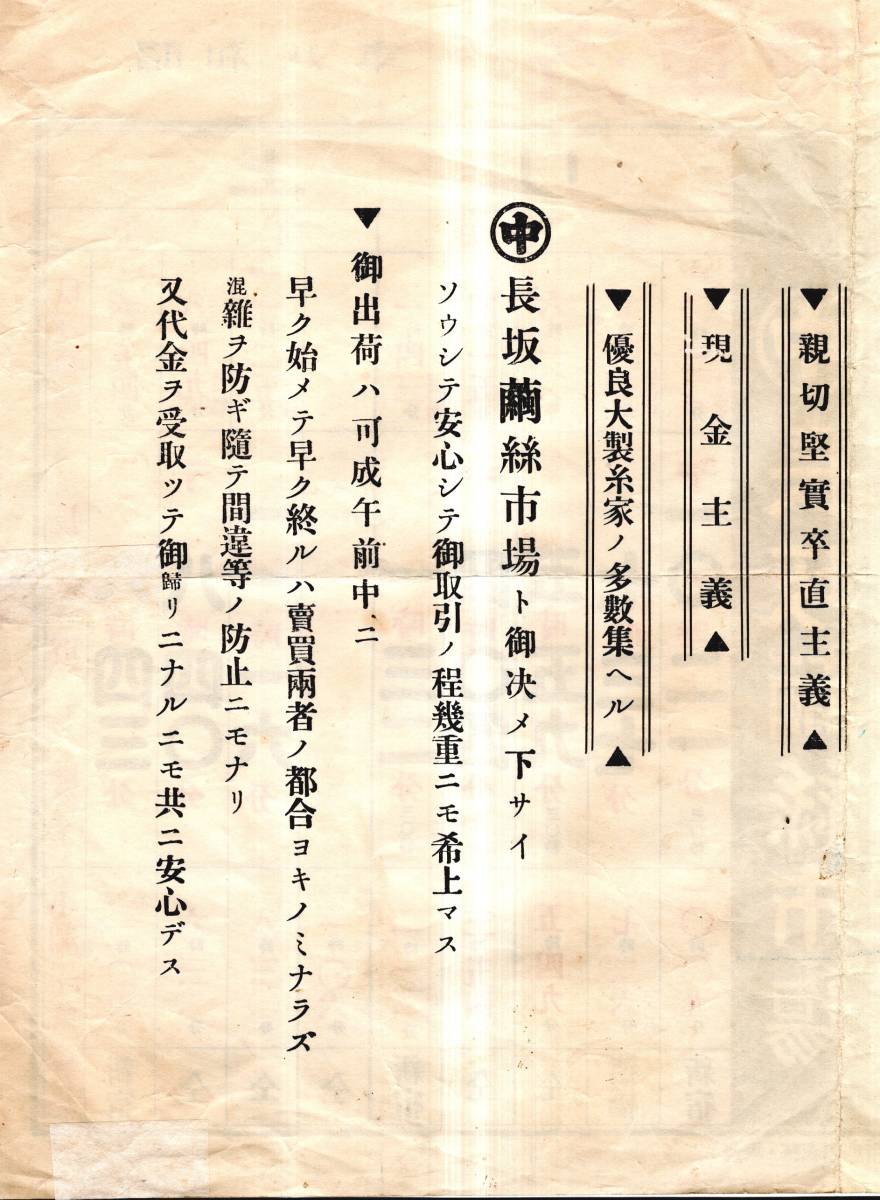 ▼親切堅實卒直主義▲
▼現金主義▲
▼優良大製糸家ノ多數集ヘル▲
㊥長坂繭絲市場ト御決メ下サイ
ソウシテ安心シテ御取引ノ程幾重ニモ希上マス
▼御出荷ハ可成午前中ニ
早ク始メテ早ク終ルハ賣買兩者ノ都合ヨキノミナラズ
混雜ヲ防ギ隨テ間違等ノ防止ニモナリ
又代金ヲ受取ツテ御歸リニナルニモ共ニ安心デス